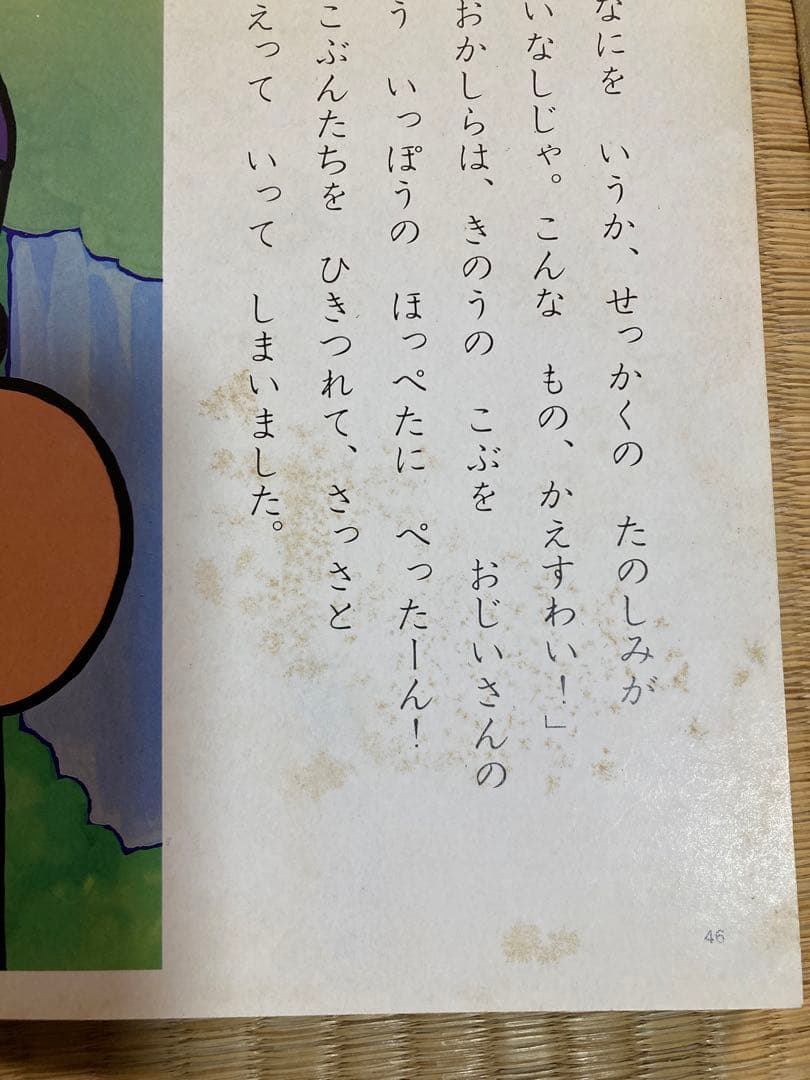 なにを いうか、せっかくの たのしみが
いなしじゃ。こんな もの、かえすわい！」
おかしらは、きのうの こぶを おじいさんの
う いっぽうの ほっぺたに ぺったーん！
こぶんたちを ひきつれて、さっさと
えって いって しまいました。
46